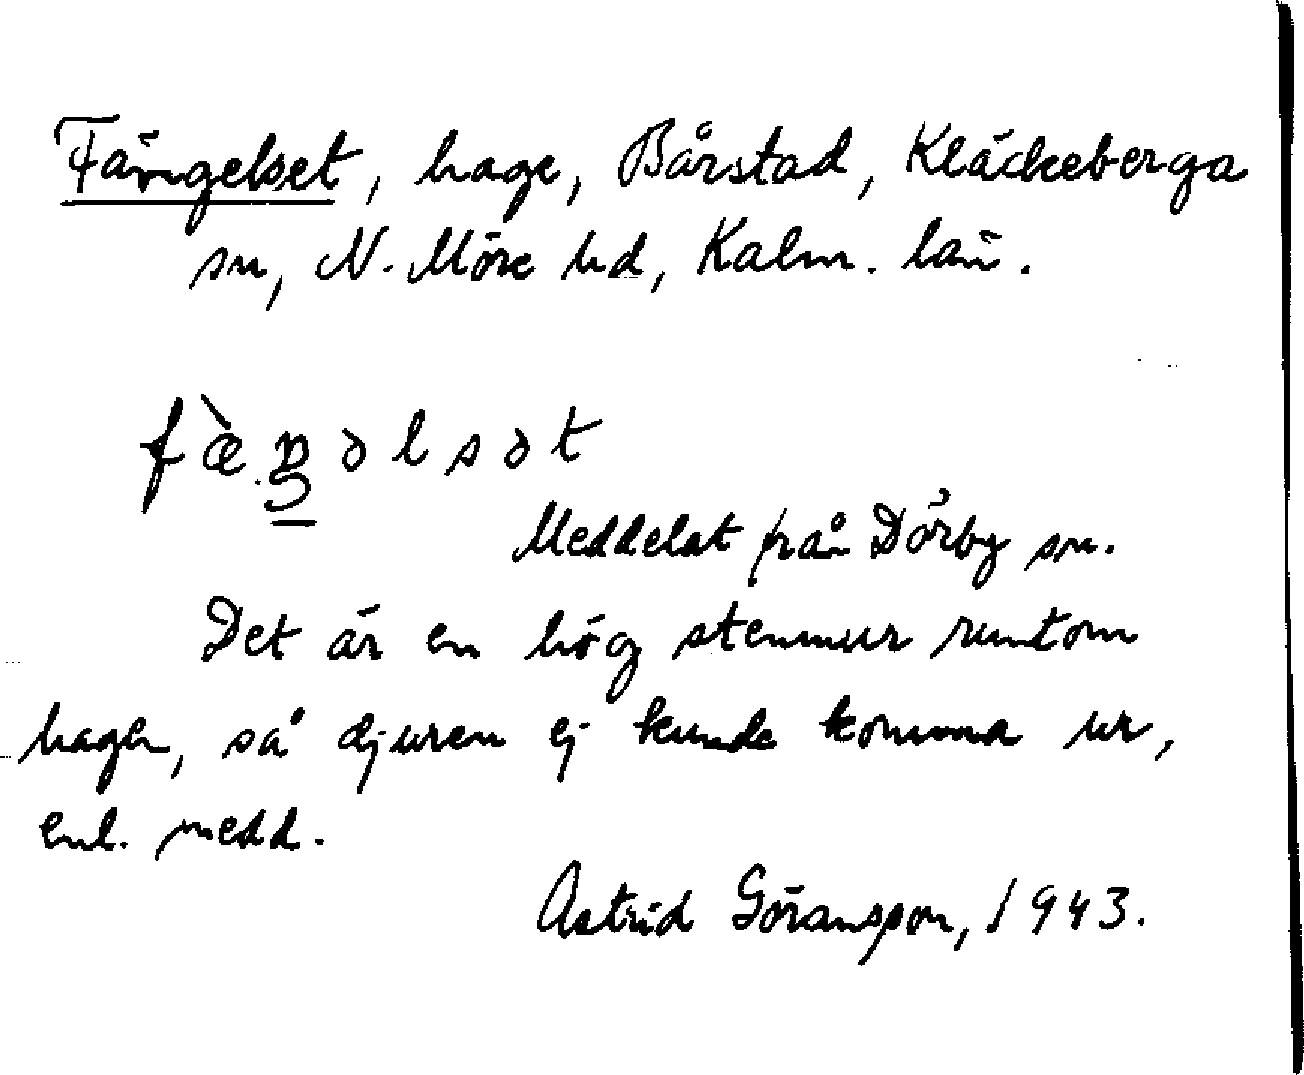 Fängelset, hage, Bårstad, Kläckeberga
sn, N. Möre hd, Kalm. län.
fæ̀ŋəlsət
Meddelat från Dörby sn.
Det är en hög stenmur runtom
hagen, så djuren ej kunde komma ur,
enl. medd.
Astrid Göransson, 1943.